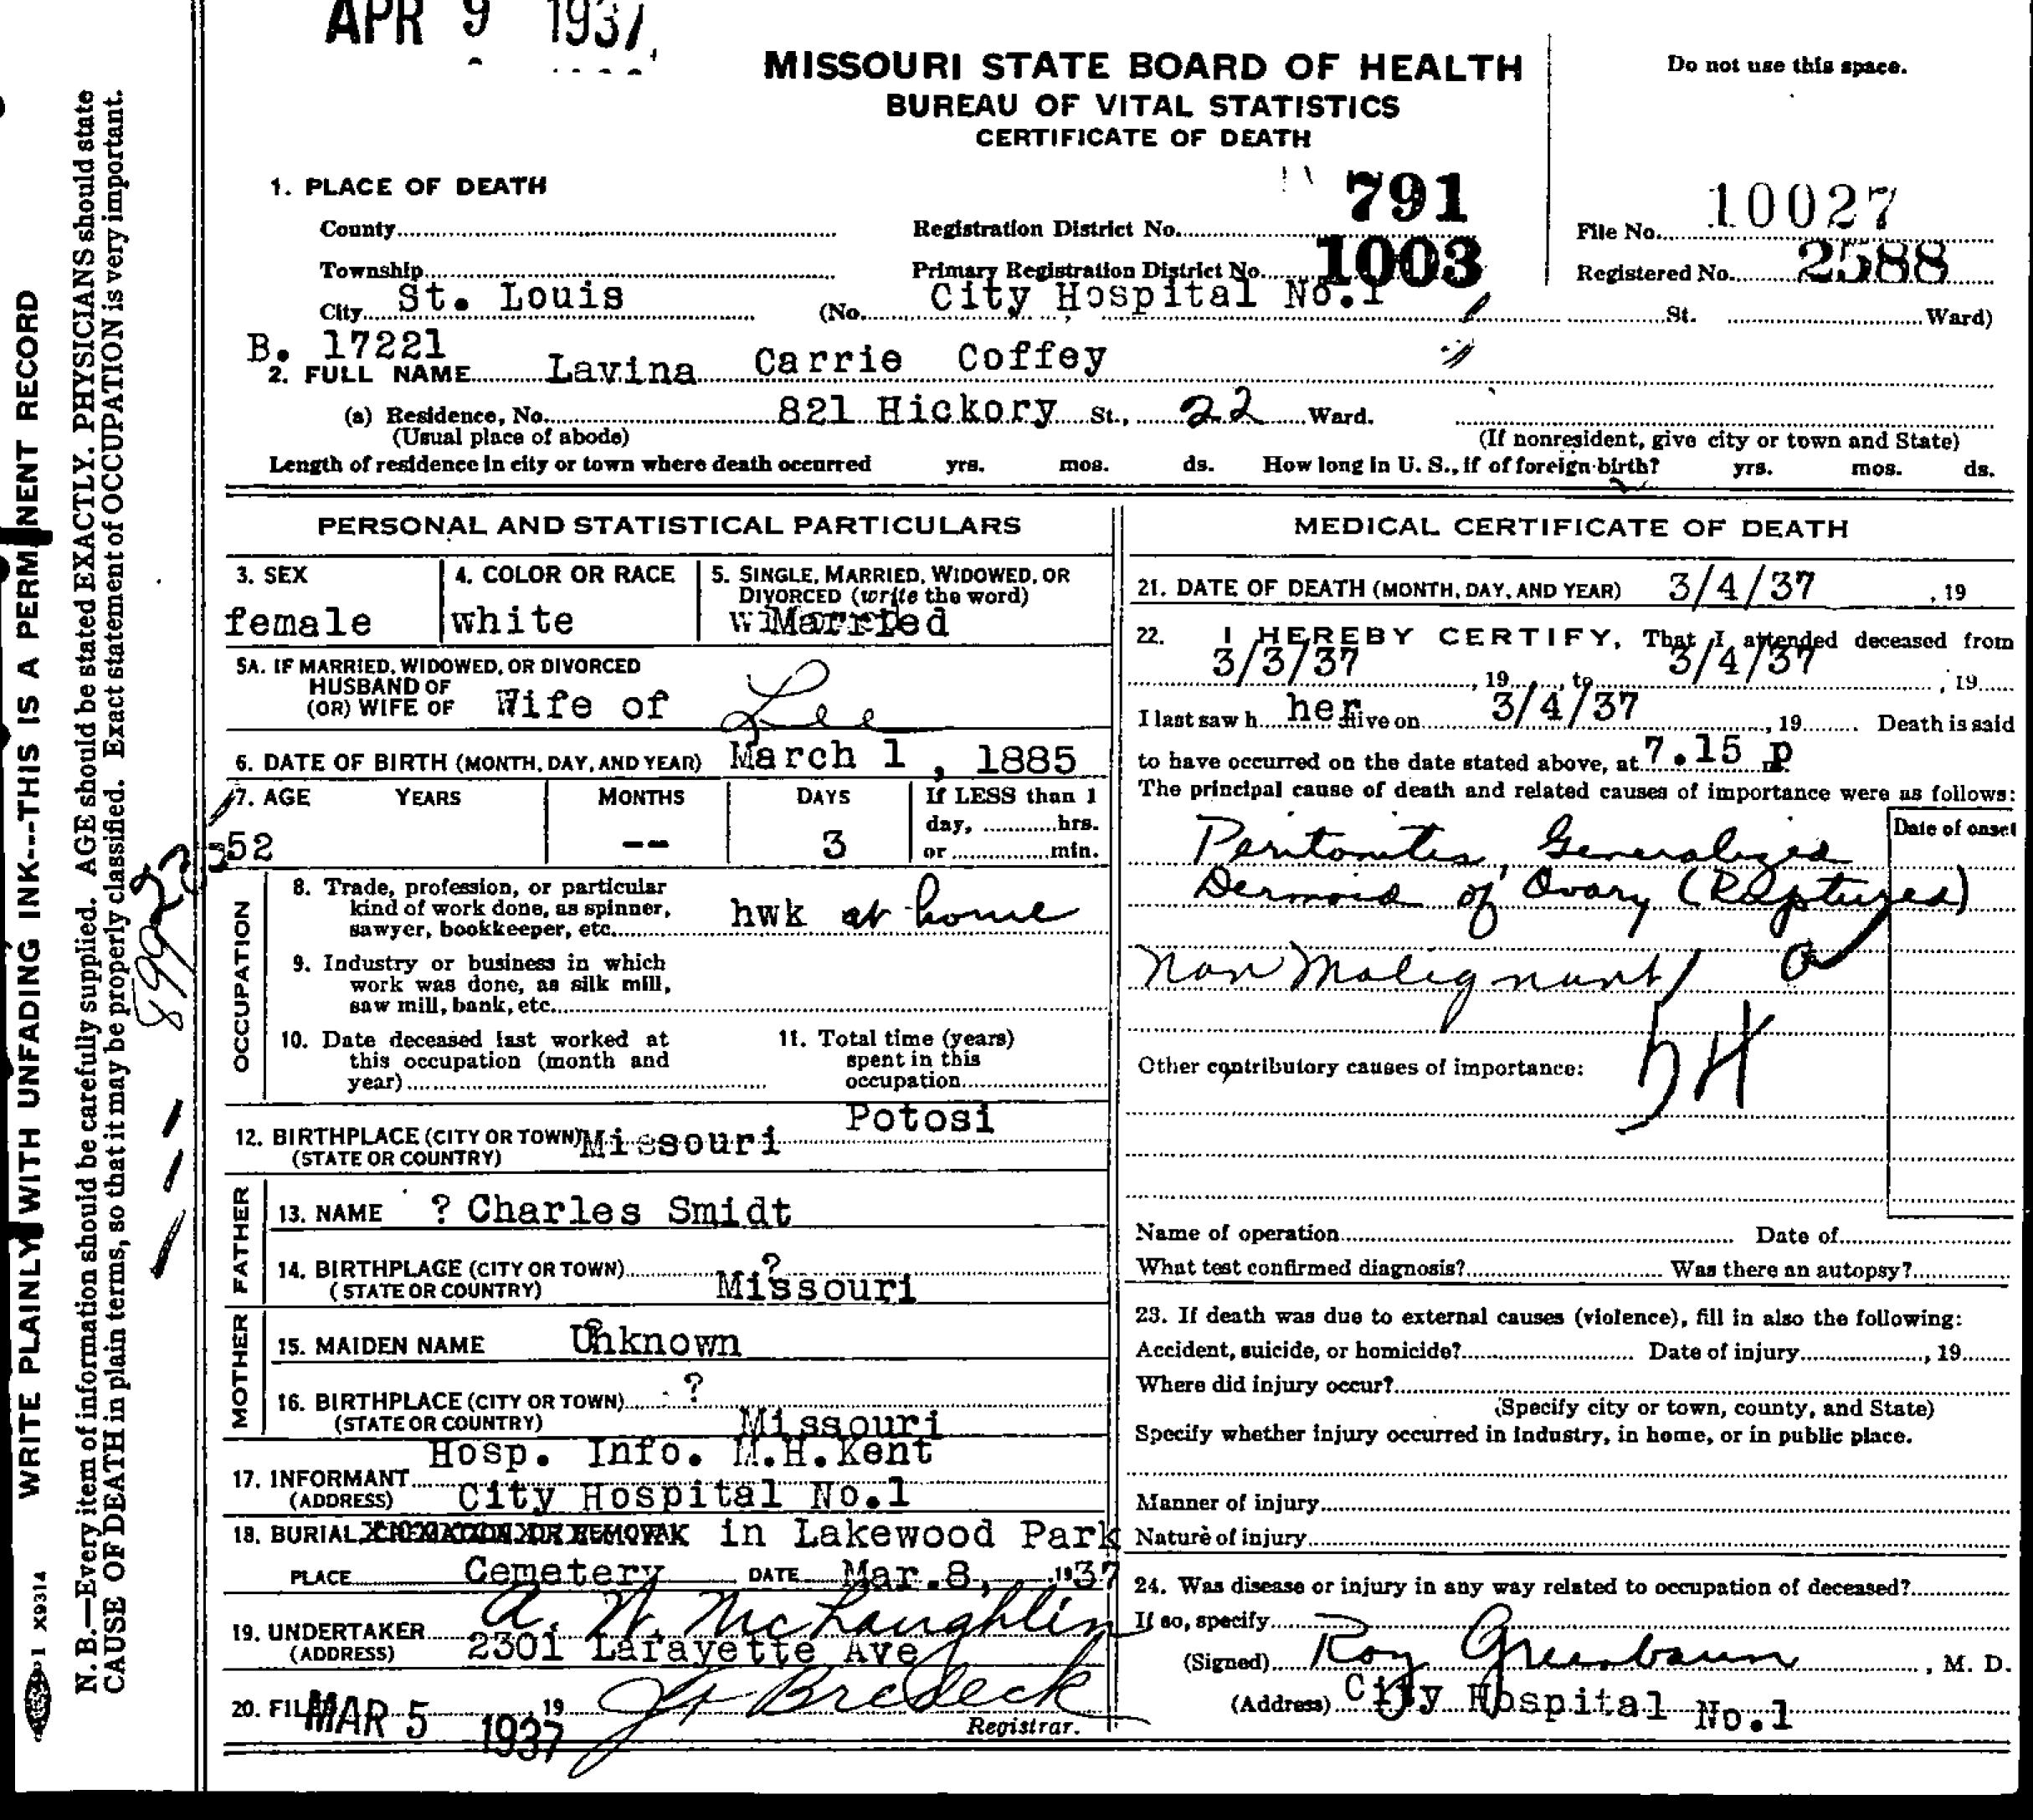 APR 9 1937
MISSOURI STATE BOARD OF HEALTH
BUREAU OF VITAL STATISTICS
CERTIFICATE OF DEATH
Do not use this space.
1. PLACE OF DEATH
County
Registration District No. 791
File No. 10027
Township
Primary Registration District No. 1003
Registered No. 2588
City St. Louis (No. City Hospital No.1 St. Ward)
B. 17221
2. FULL NAME Lavina Carrie Coffey
(a) Residence, No. 821 Hickory St., 22 Ward.
(Usual place of abode) (If nonresident, give city or town and State)
Length of residence in city or town where death occurred yrs. mos. ds. How long in U. S., if of foreign birth? yrs. mos. ds.
PERSONAL AND STATISTICAL PARTICULARS
3. SEX
female
4. COLOR OR RACE
white
5. SINGLE, MARRIED, WIDOWED, OR
DIVORCED (write the word)
Married
5A. IF MARRIED, WIDOWED, OR DIVORCED
HUSBAND OF
(OR) WIFE OF Wife of Lee
6. DATE OF BIRTH (MONTH, DAY, AND YEAR) March 1, 1885
7. AGE YEARS MONTHS DAYS If LESS than 1
day, hrs.
or min.
52 -- 3
OCCUPATION
8. Trade, profession, or particular
kind of work done, as spinner,
sawyer, bookkeeper, etc. hwk at home
9. Industry or business in which
work was done, as silk mill,
saw mill, bank, etc.
10. Date deceased last worked at
this occupation (month and
year)
11. Total time (years)
spent in this
occupation
12. BIRTHPLACE (CITY OR TOWN) Potosi
(STATE OR COUNTRY) Missouri
FATHER
13. NAME ? Charles Smidt
14. BIRTHPLACE (CITY OR TOWN) ?
(STATE OR COUNTRY) Missouri
MOTHER
15. MAIDEN NAME Unknown
16. BIRTHPLACE (CITY OR TOWN) ?
(STATE OR COUNTRY) Missouri
17. INFORMANT Hosp. Info. M.H.Kent
(ADDRESS) City Hospital No.1
18. BURIAL, CREMATION OR REMOVAL in Lakewood Park
PLACE Cemetery DATE Mar.8, 1937
19. UNDERTAKER A. W. McLaughlin
(ADDRESS) 2301 Lafayette Ave
20. FILED MAR 5 1937, 19 Bredeck
Registrar.
MEDICAL CERTIFICATE OF DEATH
21. DATE OF DEATH (MONTH, DAY, AND YEAR) 3/4/37, 19
22. I HEREBY CERTIFY, That I attended deceased from
3/3/37, 19, to 3/4/37, 19
I last saw her alive on 3/4/37, 19 Death is said
to have occurred on the date stated above, at 7.15 p m.
The principal cause of death and related causes of importance were as follows:
Date of onset
Peritonitis, Generalized
Dermoid of Ovary (Ruptured)
Non Malignant
54 a
Other contributory causes of importance:
Name of operation Date of
What test confirmed diagnosis? Was there an autopsy?
23. If death was due to external causes (violence), fill in also the following:
Accident, suicide, or homicide? Date of injury, 19
Where did injury occur?
(Specify city or town, county, and State)
Specify whether injury occurred in industry, in home, or in public place.
Manner of injury
Nature of injury
24. Was disease or injury in any way related to occupation of deceased?
If so, specify
(Signed) Roy Greenbaum, M. D.
(Address) City Hospital No.1
WRITE PLAINLY WITH UNFADING INK---THIS IS A PERMANENT RECORD
N. B.—Every item of information should be carefully supplied. AGE should be stated EXACTLY. PHYSICIANS should state
CAUSE OF DEATH in plain terms, so that it may be properly classified. Exact statement of OCCUPATION is very important.
1 X9314